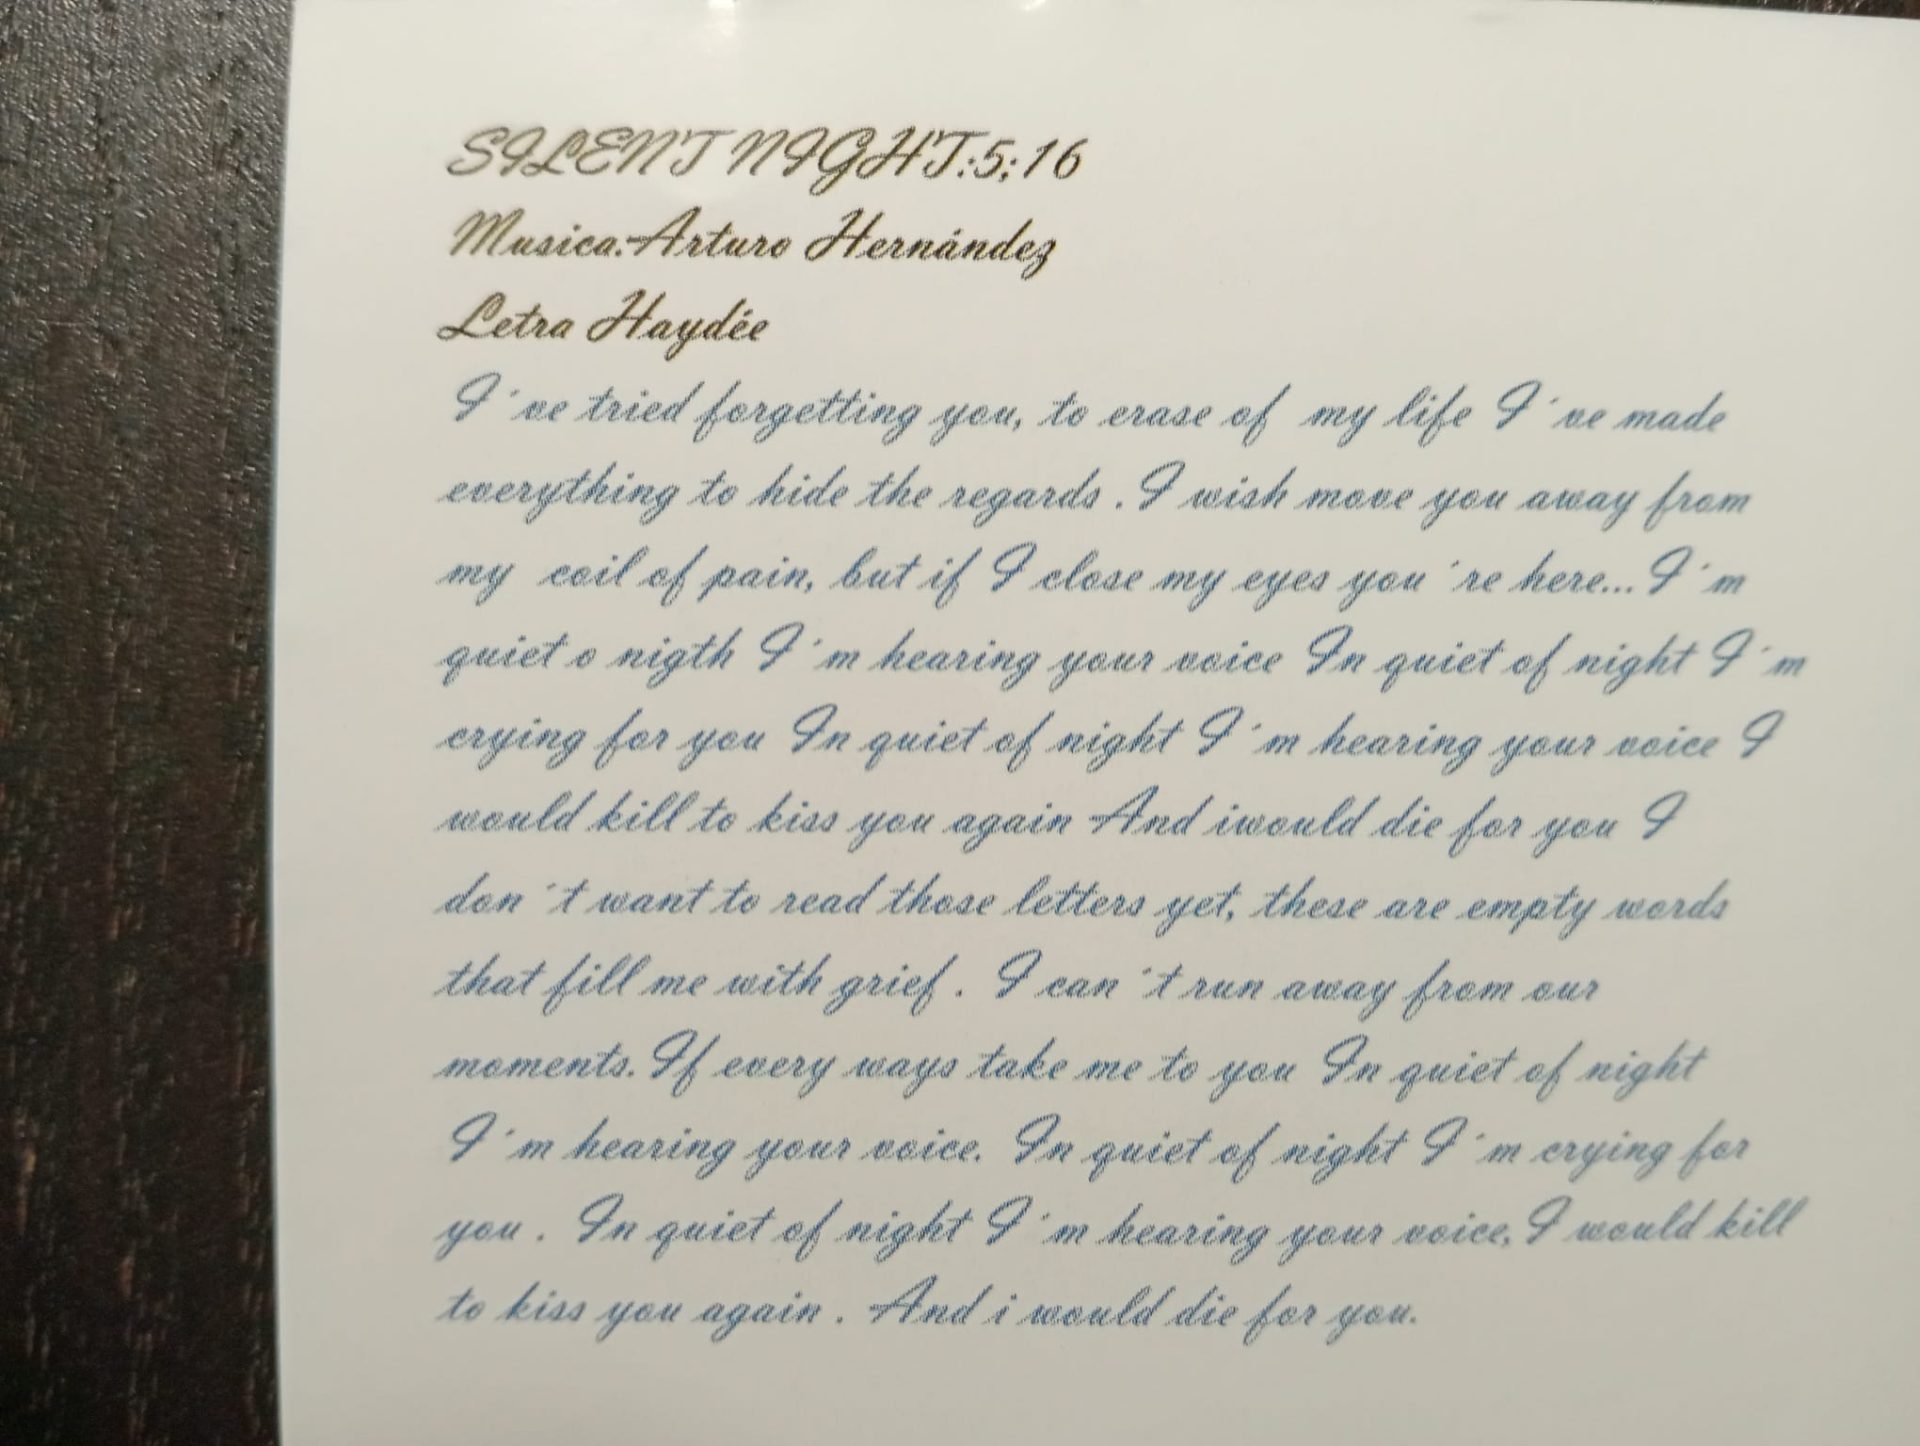 SILENT NIGHT:5;16
Musica:Arturo Hernández
Letra Haydée
I´ve tried forgetting you, to erase of my life I´ve made
everything to hide the regards . I wish move you away from
my coil of pain, but if I close my eyes you ´re here... I´m
quiet o nigth I´m hearing your voice In quiet of night I´m
crying for you In quiet of night I´m hearing your voice I
would kill to kiss you again And iwould die for you I
don´t want to read those letters yet, these are empty words
that fill me with grief . I can´t run away from our
moments. If every ways take me to you In quiet of night
I´m hearing your voice. In quiet of night I´m crying for
you . In quiet of night I´m hearing your voice, I would kill
to kiss you again . And i would die for you.